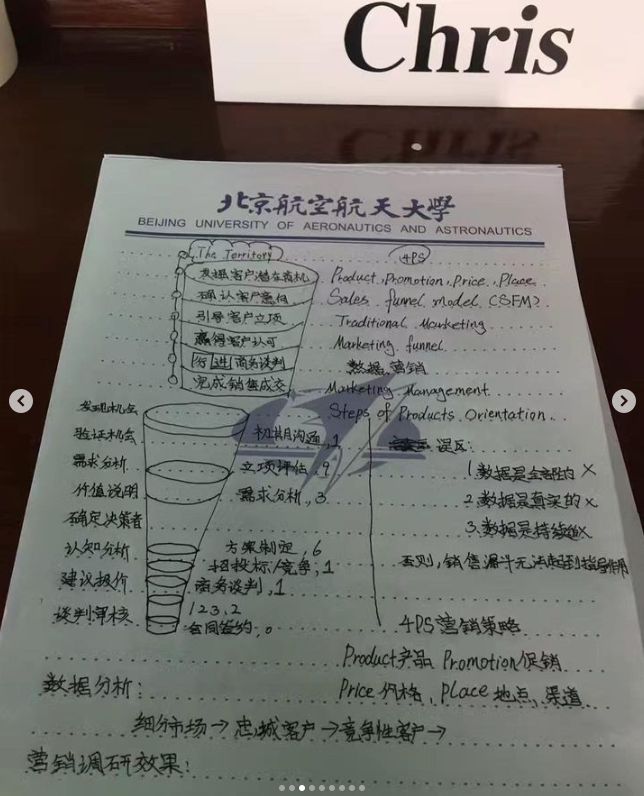 Chris
北京航空航天大學
BEIJING UNIVERSITY OF AERONAUTICS AND ASTRONAUTICS
The Territory
发掘客户潜在商机
确认客户意向
引导客户立项
赢得客户认可
进行商务谈判
完成销售成交
4PS
Product, Promotion, Price, Place
Sales funnel model (SFM)
Traditional Marketing
Marketing funnel
数据 营销
Marketing Management
Steps of Products Orientation
发现机会
验证机会
需求分析
价值说明
确定决策者
认知分析
建议报价
谈判审核
初期沟通, 1
立项评估, 9
需求分析, 3
方案制定, 6
招投标/竞争, 1
商务谈判, 1
123, 2
合同签约, 0
误区:
1. 数据是全部的 ×
2. 数据是真实的 ×
3. 数据是持续的 ×
否则, 销售漏斗无法起到指导作用
4PS营销策略
Product产品 Promotion促销
Price 价格, Place 地点, 渠道
数据分析:
细分市场→忠诚客户→竞争性客户→
营销调研效果: